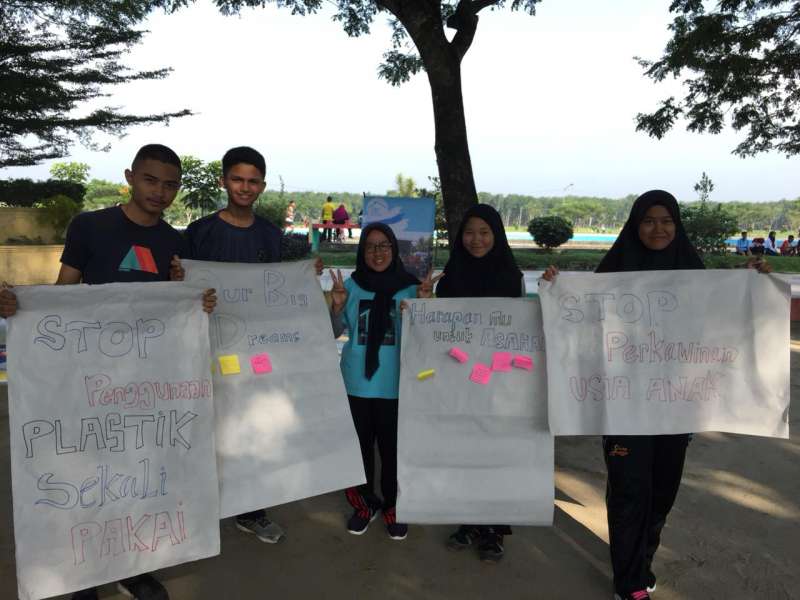 STOP
Penggunaan
PLASTIK
Sekali
PAKAI
Our Big
Dreams
Harapan mu
untuk ASAHAN
STOP
Perkawinan
USIA ANAK